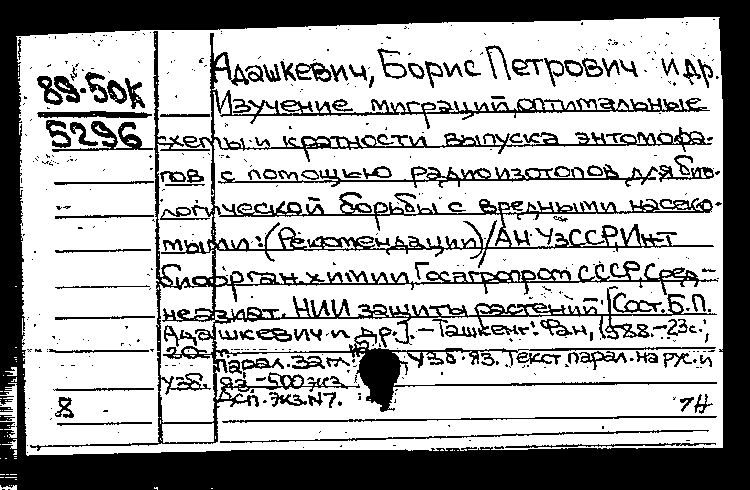 89-50К
5296
Адашкевич, Борис Петрович и др.
Изучение миграций, оптимальные
схемы и кратности выпуска энтомофа-
гов с помощью радиоизотопов для био-
логической борьбы с вредными насеко-
мыми: (Рекомендации)/АН УзССР, Ин-т
биоорган. химии, Госагропром СССР, Сред-
неазиат. НИИ защиты растений; [Сост. Б.П.
Адашкевич и др.]. - Ташкент: Фан, 1988. - 23с.;
20см.
Парал. загл. узб. яз. Текст парал. на рус. и
узб. яз. - 500 экз.
Дсп. Экз. N7.
8